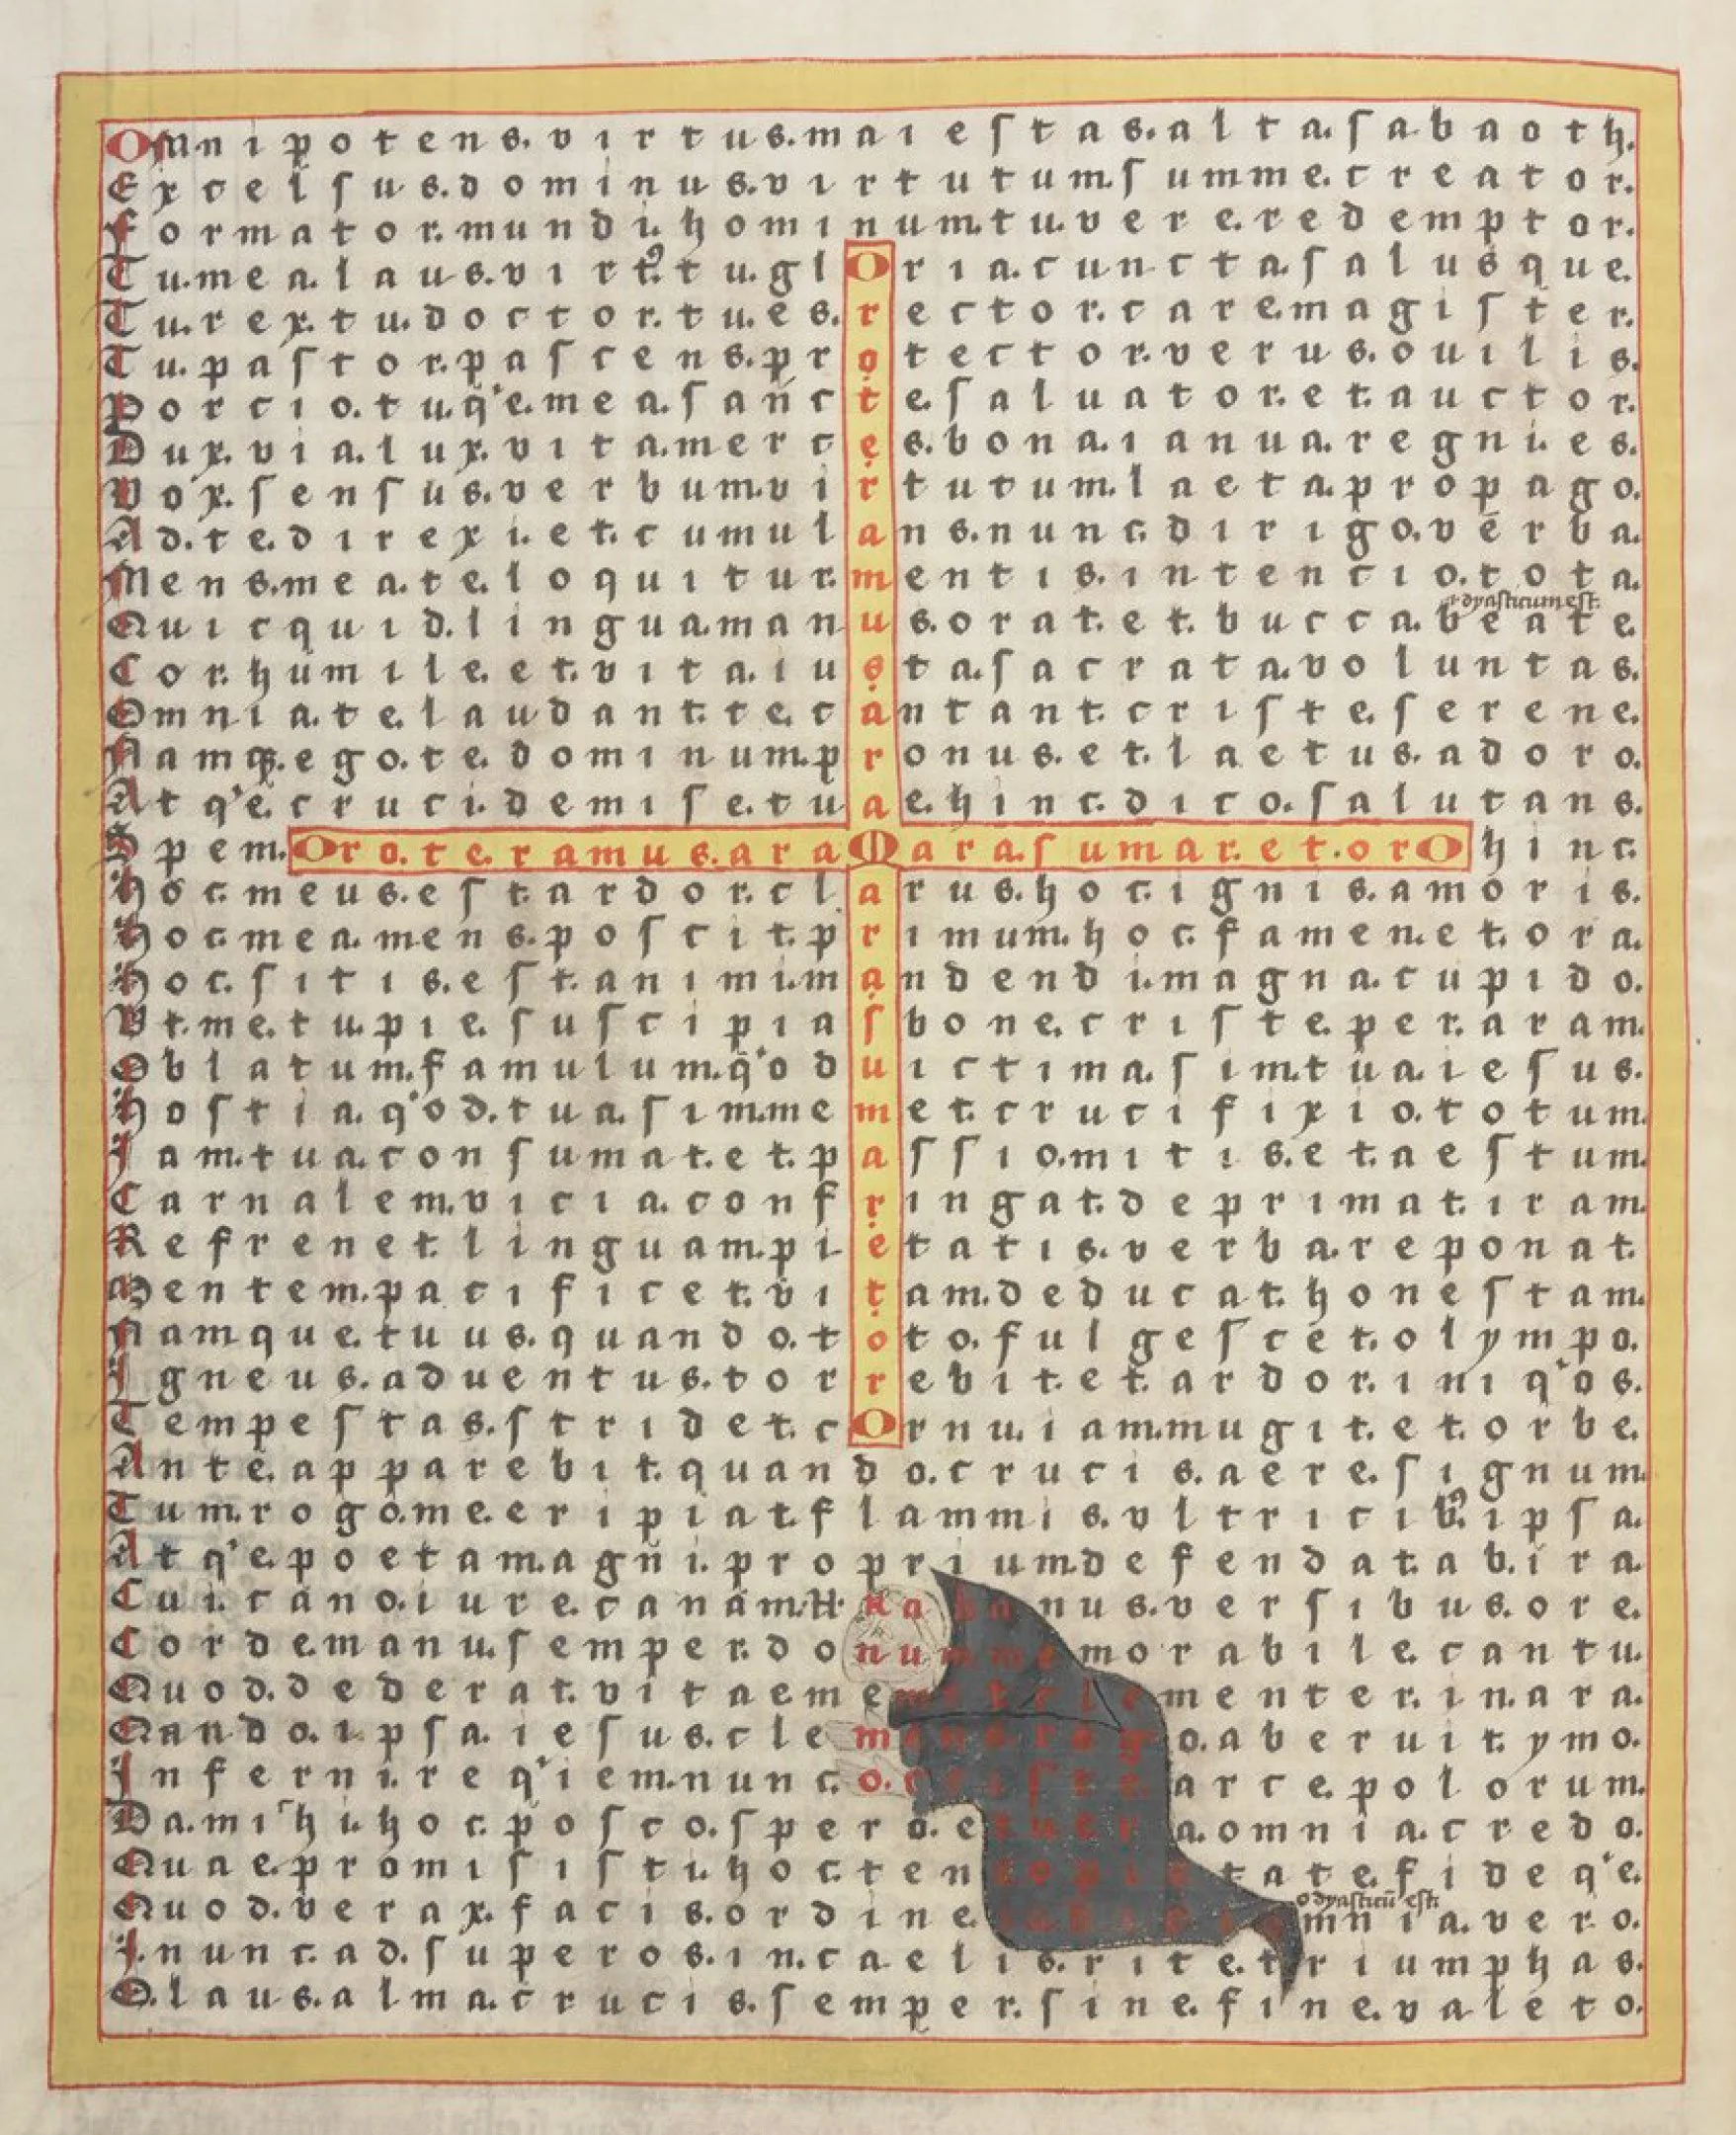 Omnipotens. virtus. maiestas. alta. sabaoth.
Excelsus. dominus. virtutum. summe. creator.
formator. mundi. hominum. tu. vere. redemptor.
Tu. mea. laus. virt⁹. tu. glOria. cuncta. salusque.
Tu. rex. tu. doctor. tu. es. rector. care. magister.
Tu. pastor. pascens. protector. verus. ouilis.
Porcio. tu. q'e. mea. sancte. saluator. et. auctor.
Dux. via. lux. vita. merces. bona. ianua. regni. es.
Vox. sensus. verbum. virtutum. laeta. propago.
Ad. te. direxi. et. cumulans. nunc. dirigo. verba.
Mens. mea. te. loquitur. mentis. intencio. tota.
dyasticum est.
Quicquid. lingua. manus. orat. et. bucca. beate
Cor. humile. et. vita. iusta. sacrata. voluntas.
Omnia. te. laudant. te. cantant. criste. serene.
Namq3. ego. te. dominum. pronus. et. laetus. adoro.
Atq'e. cruci. demisse. tuae. hinc. dico. salutans.
Spem. Oro. te. ramus. ara Mara. sumar. et. orO hinc.
Hoc. meus. est. ardor. clarus. hoc. ignis. amoris.
Hoc. mea. mens. poscit. primum. hoc. famen. et. ora.
Hoc. sitis. est. animi. mandendi. magna. cupido.
Vt. me. tu. pie. suscipias bone. criste. per. aram.
Oblatum. famulum. q'od uictima. sim. tua. iesus.
Hostia. q'od. tua. sim. memet. crucifixio. totum.
Iam. tua. consumat. et. passio. mitis. et. aestum.
Carnalem. vicia. confringat. deprimat. iram.
Refrenet. linguam. pietatis. verba. reponat.
Mentem. pacificet. vitam. deducat. honestam.
Namque. tuus. quando. toto. fulgescet. olympo.
Igneus. aduentus. torrebit. et. ardor. iniq'os.
Tempestas. stridet. cOrnu. iam. mugit. et. orbe.
Ante. apparebit. quando. crucis. aere. signum.
Tum. rogo. me. eripiat. flammis. vltricib⁹. ipsa.
Atq'e. poetam. agni. proprium. defendat. ab. ira.
Cui. cano. iure. canam. Hrabanus. versibus. ore.
Corde. manu. semper. donum memorabile. cantu.
Quod. dederat. vitae memet cle menter. in. ara.
Qando. ipsa. iesus. clemens rogo. ab eruit. ymo.
Inferni. req'iem. nunc. o. criste. arce. polorum.
Da. mihi. hoc. posco. spero. et uera. omnia. credo.
Quae. promisisti. hoc. teneo pietate. fideq'e.
o dyasticū est.
Quod. verax. facis. ordine. iudicio omnia. vero.
I. nunc. ad. superos. in. caelis. rite. triumphas.
O. laus. alma. crucis. semper. sine. fine. valeto.